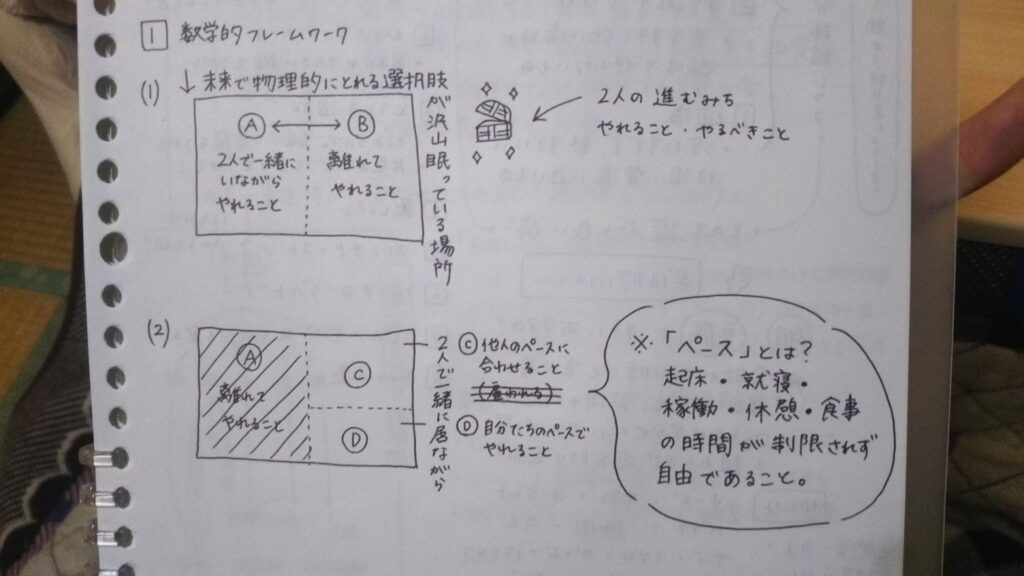 1 数学的フレームワーク
(1) ↓未来で物理的にとれる選択肢
が沢山眠っている場所
A ↔ B
2人で一緒に
いながら
やれること
離れて
やれること
2人の進むみち
やれること・やるべきこと
(2)
A
離れて
やれること
C
D
2人で一緒に居ながら
C 他人のペースに
合わせること
(雇われる)
D 自分たちのペースで
やれること
※「ペース」とは?
起床・就寝・
稼働・休憩・食事
の時間が制限されず
自由であること。